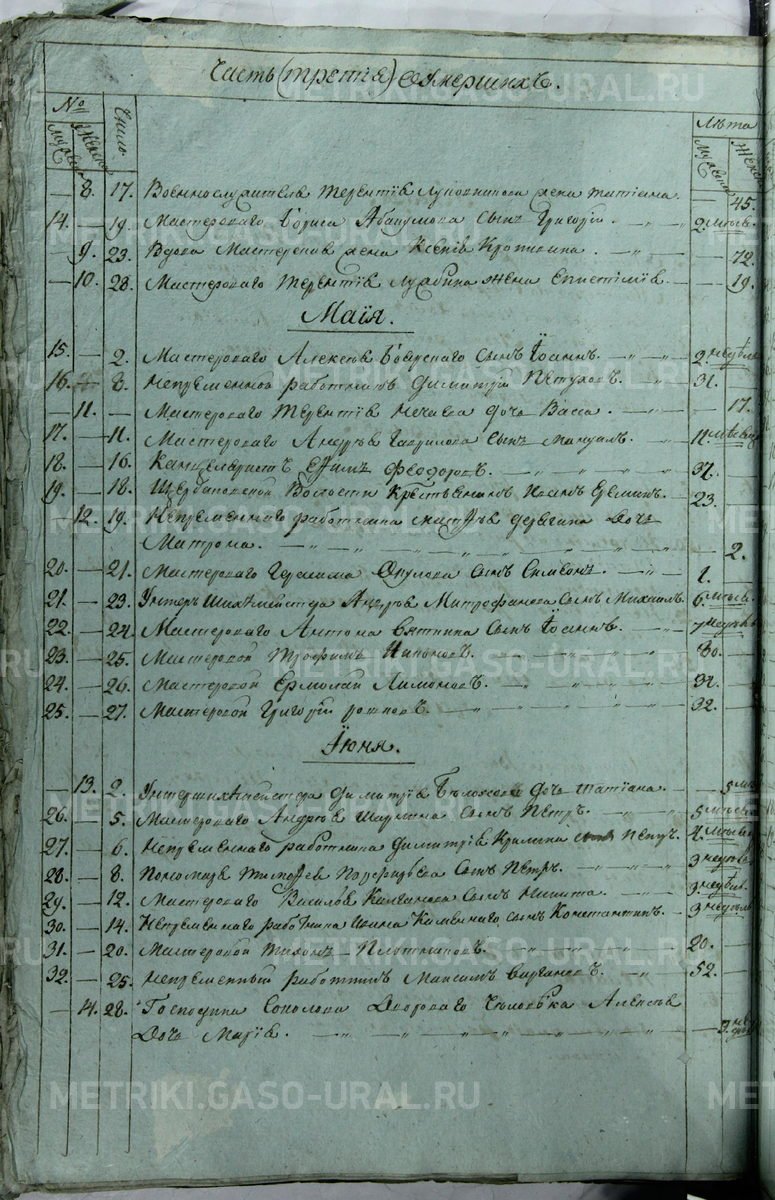 Часть (третія) оумершихъ.
№ Число Лѣта
Мужеска Женска Мужеска Женск
— 8. 17. Военнослужителя Терентія Луковникова жена Татіана. — 45.
14. — 19. Мастероваго Бориса Абакумова сынъ Григорій — 2. мѣсяв.
— 9. 23. Вдова Мастерская жена Ксенія Кропивина. — 72.
— 10. 28. Мастероваго Терентія Лужбина жена Епистимія — 19.
Маія.
15. — 2. Мастероваго Алексѣя Боярскаго сынъ Іоаннъ. — 2. недѣл
16. — 8. Непременной работникъ Димитрій Пѣтуховъ. — 31.
— 11. — Мастероваго Терентія Нечаева дочь Васса. — 17.
17. — 11. Мастероваго Андрѣя Гаврилова сынъ Мануилъ. — 11. мѣсяв
18. — 16. Канцеляристъ Ефимъ Феодоровъ. 37.
19. — 18. Щербаковской Волости Крестьянинъ Иванъ Ереминъ. 23.
12. 19. Непременнаго работника Матфѣя Дерягина дочь
Матрона. — 2.
20. — 21. Мастероваго Герасима Окулова сынъ Симеонъ. — 1.
21. — 23. Унтеръ Шихтмейстера Андрѣя Митрофанова сынъ Михаилъ. 6. мѣсяв.
22. — 24. Мастероваго Антона Вяткина сынъ Іоаннъ. — 7 недѣль
23. — 25. Мастеровой Трофимъ Никоновъ. — 80.
24. — 26. Мастеровой Ермолай Лимоновъ. — 34.
25. — 27. Мастеровой Григорій Рожковъ. — 32.
Іюня.
— 13. 2. Унтершихтмейстера Димитрія Бѣлоусова дочь Татіана. — 5 мѣ
26. — 5. Мастероваго Андрѣя Ширкина сынъ Пѣтръ. — 5 мѣсяв
27. — 6. Непременнаго работника Димитрія Крылина сынъ Пѣтръ. 4. мѣсяв
28. — 8. Пономаря Тимофея Парфирьева сынъ Пѣтръ. — 3 недѣл
29. — 12. Мастероваго Василья Колганова сынъ Никита. — 3. недѣль
30. — 14. Непременнаго работника Ивана Каменнаго сынъ Константинъ. — 3 недѣль
31. — 20. Мастеровой Тихонъ Плотниковъ. 20.
32. — 25. Непременный работникъ Максимъ Варгановъ. 52.
— 14. 28. Господина Соколова Двороваго Человѣка Алексѣя
Дочь Марія. — 3. нед
METRIKI.GASO-URAL.RU